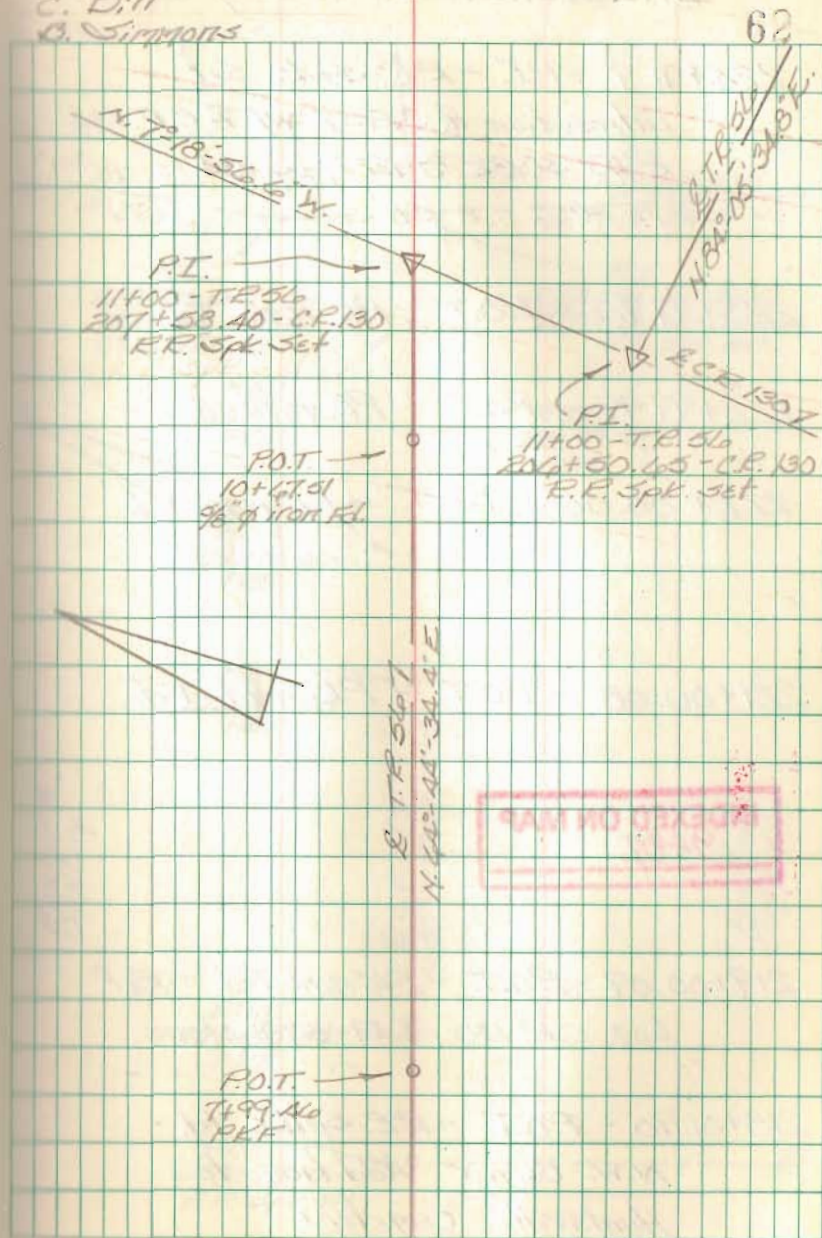 C. Dill
B. Simmons
62
N. 7°-18'-56.6" W.
℄ T.R. 56
N. 84°-05'-34.8" E.
P.I.
11+00 - T.R. 56
207+58.40 - C.R. 130
R.R. Spk. Set
℄ C.R. 130
P.I.
11+00 - T.R. 56
206+50.65 - C.R. 130
R.R. Spk. Set
P.O.T.
10+47.51
5/8" ø iron Fd.
℄ T.R. 56
N. 64°-44'-34.4" E
INDEXED ON MAP
P.O.T.
7+99.46
PKF